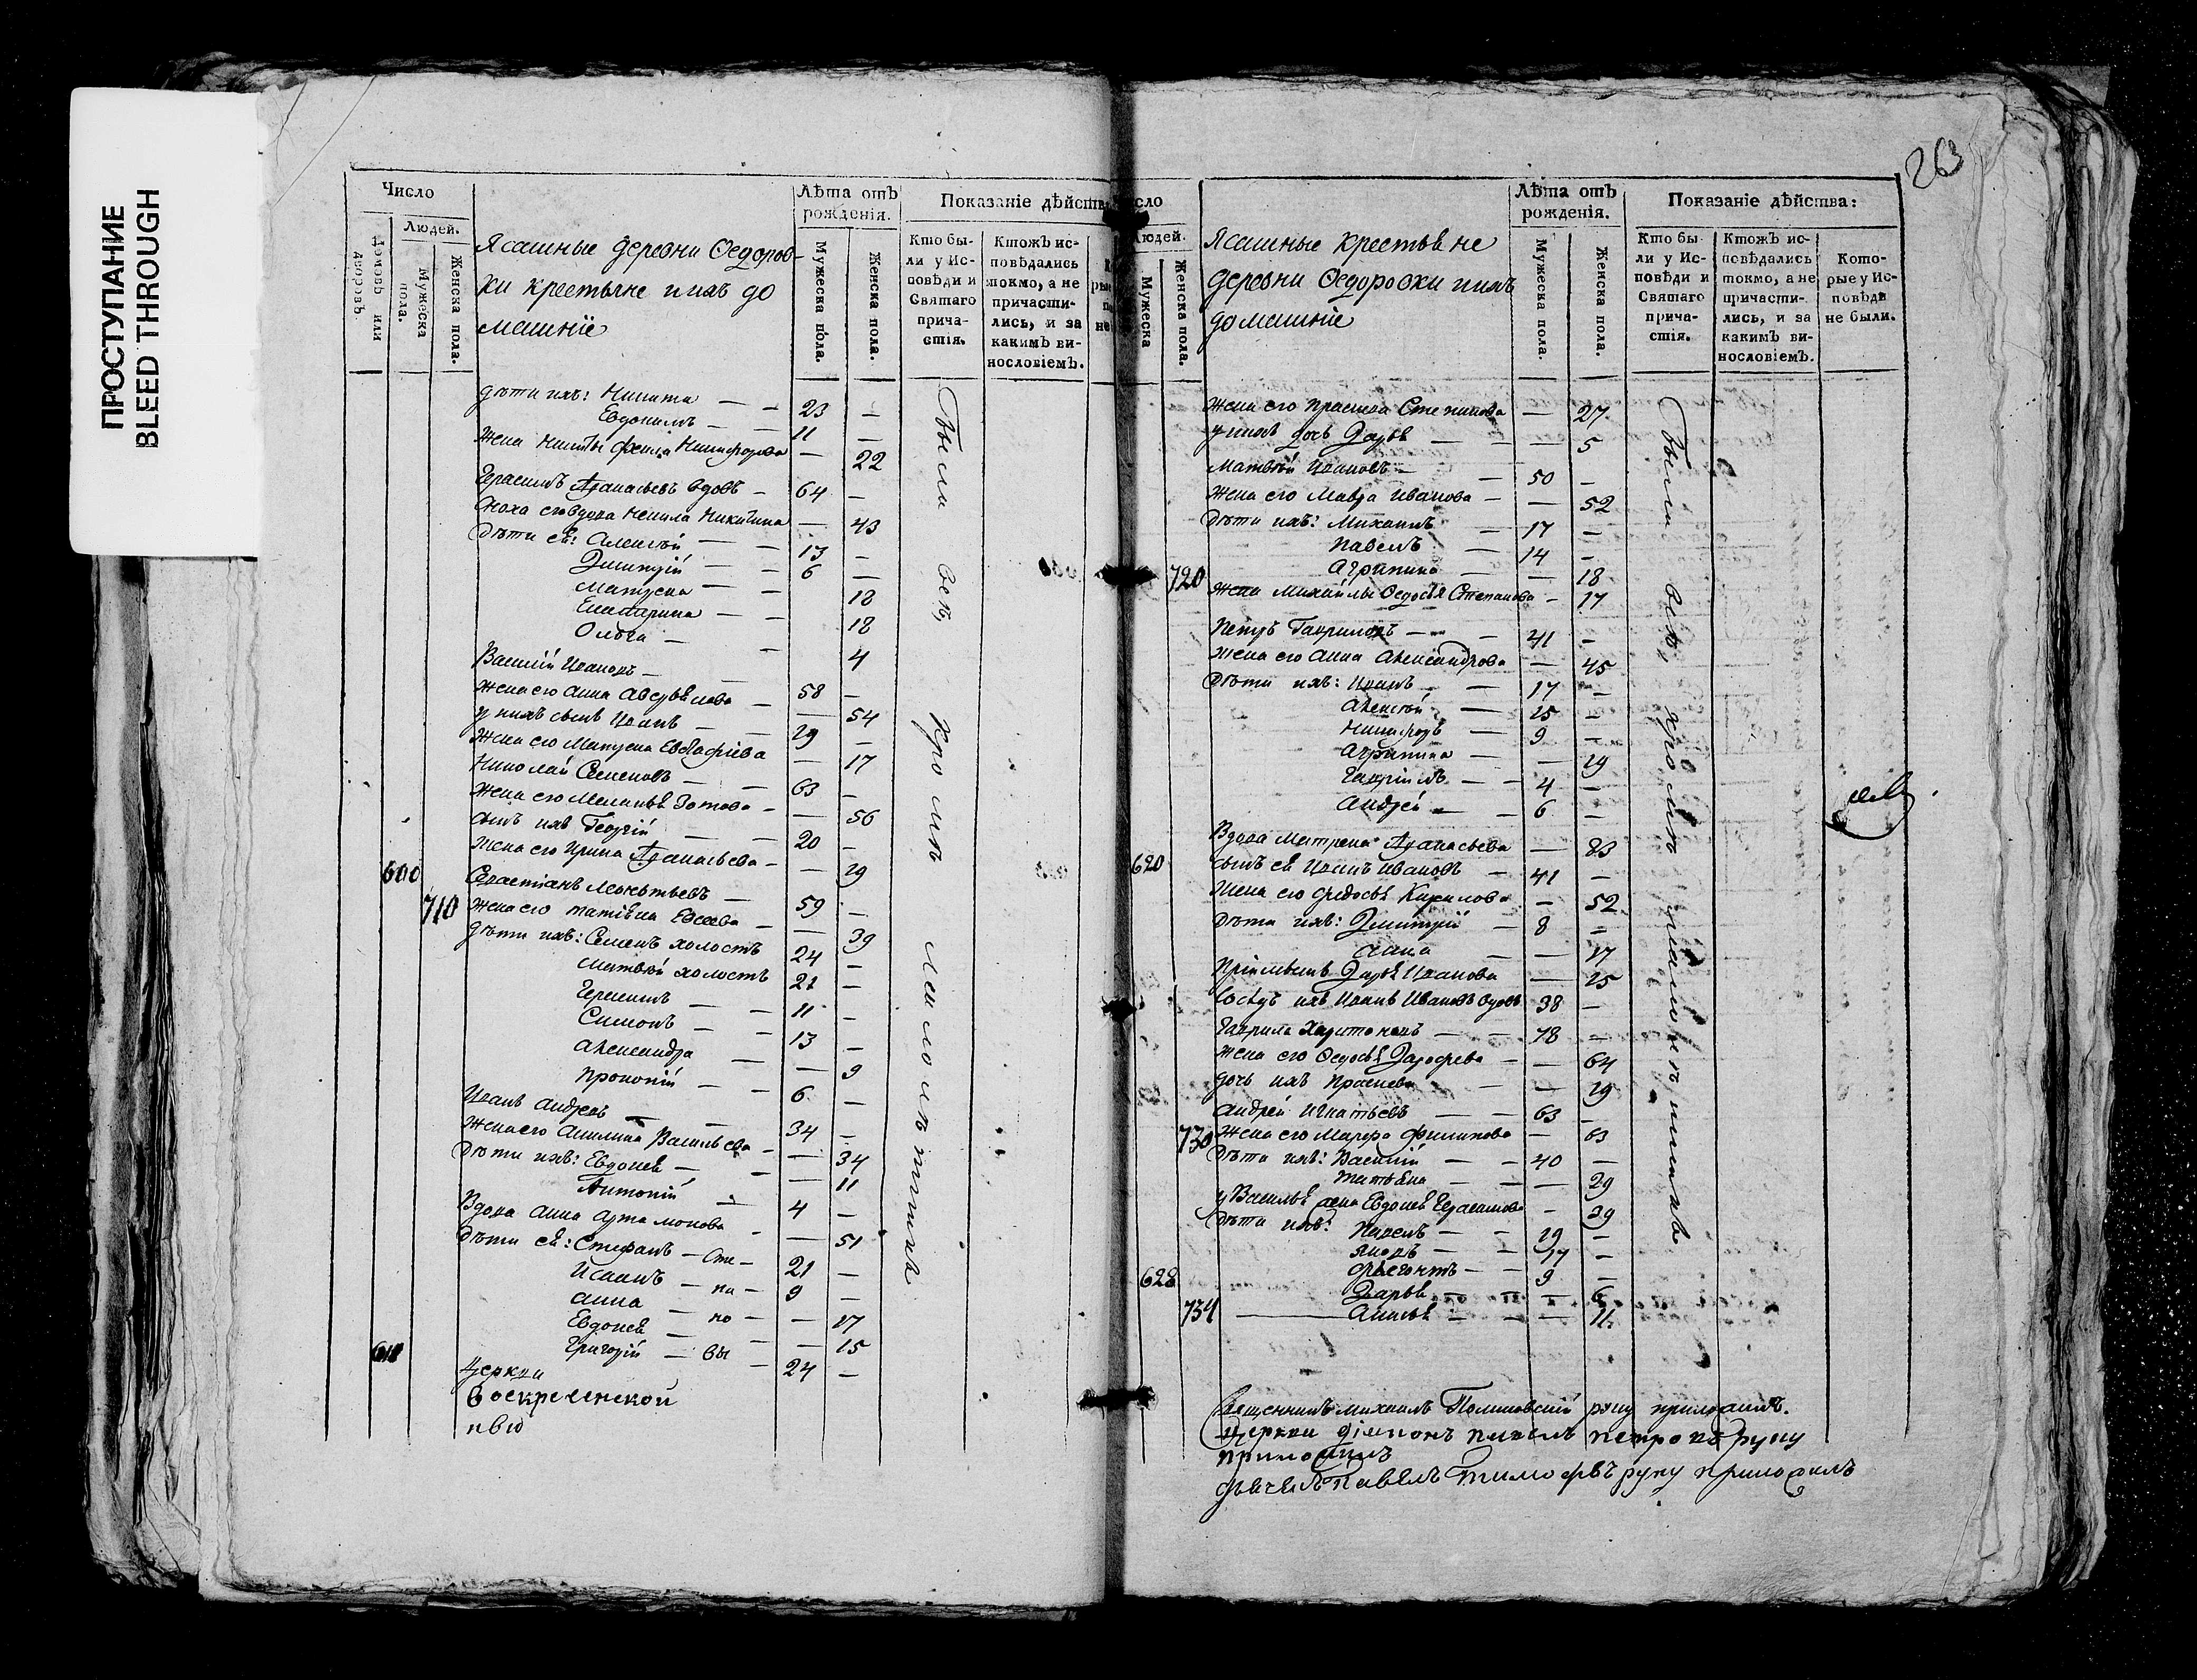 ПРОСТУПАНИЕ
BLEED THROUGH
263
Число
Домовъ или дворовъ.
Людей.
Мужеска пола.
Женска пола.
Ясашные деревни Ѳедоров-
ки крестьяне и ихъ до
машніе
Лѣта отъ рожденія.
Мужеска пола.
Женска пола.
Показаніе дѣйства
Кто бы-
ли у Ис-
повѣди и
Святаго
прича-
стія.
Ктожъ ис-
повѣдались
токмо, а не
причасти-
лись, и за
какимъ ви-
нословіемъ.
дѣти ихъ: Никита — — 23 —
Евдокимъ — — 11 —
Жена Никиты Никифорова — 22
Герасимъ Аѳанасьевъ вдовъ — 64 —
Сноха его вдова Ненила Никитина — 43
Дѣти ея: Алексѣй — — 13 —
Дмитрій — — 6 —
Матрена — — 18
Екатерина — — 18
Ольга — — 4
Василій Ивановъ — — 58 —
Жена его Анна — — 54
у нихъ сынъ Иванъ — — 29 —
Жена его Матрена — 17
Николай Семеновъ — — 63 —
Жена его Меланья Зотова — — 56
сынъ ихъ Георгій — — 20 —
Жена его Ирина Аѳанасьева — — 29
600
Севастіанъ — 59 —
710
Жена его Татіяна Евсеева — — 39
дѣти ихъ: Семенъ холостъ 24 —
Матвѣй холостъ 21 —
Герасимъ — — 11 —
Симонъ — — 13 —
Александра — — 9
Прокопій — — 6 —
Иванъ Андреевъ — — 34 —
Жена его Акилина Васильева — — 34
Дѣти ихъ: Евдокея — — 11
Антоній — 4 —
Вдова Анна Артамонова — — 51
Дѣти ея: Стефанъ — 21 —
Исаакъ — 9 —
Анна — — 17
Евдокея — — 15
618
Григорій — 24 —
были всѣ, кромѣ малолѣтныхъ
Церкви
Воскресенской
Людей.
Мужеска
Женска пола.
Ясашные крестьяне
деревни Ѳедоровки и ихъ
домашніе
Лѣта отъ рожденія.
Мужеска пола.
Женска пола.
Показаніе дѣйства:
Кто бы-
ли у Ис-
повѣди и
Святаго
прича-
стія.
Ктожъ ис-
повѣдались
токмо, а не
причасти-
лись, и за
какимъ ви-
нословіемъ.
Кото-
рые у Ис-
повѣди
не были.
Жена его Прасковья Степанова — 27
у нихъ дочь Дарья — — 5
Матвѣй Ивановъ — — 50 —
Жена его Мавра Иванова — — 52
Дѣти ихъ: Михаилъ — 17 —
Павелъ — 14 —
720
Агрипина — — 18
Жена Михайлы Ѳедосья Степанова — 17
Петръ Гавриловъ — — 41 —
Жена его Анна Александрова — 45
Дѣти ихъ: Иванъ — — 17 —
Алексѣй — 15 —
Никифоръ — 9 —
Агрипина — — 19
Гавріилъ — — 4 —
Андрей — — 6 —
Вдова Матрена Аѳанасьева — 83
620
сынъ ея Иванъ Ивановъ — 41 —
Жена его Ѳедосья Кирилова — 52
Дѣти ихъ: Дмитрій — 8 —
Анна — — 17
Дарья Иванова — 25
Сосѣдъ ихъ Иванъ Ивановъ вдовъ 38 —
Гаврила Харитоновъ — — 78 —
Жена его Ѳедосья — — 64
дочь ихъ Прасковья — — 29
Андрей Игнатьевъ — — 63 —
730
Жена его Марфа Филипова — 63
Дѣти ихъ: Василій — — 40 —
Татьяна — — — 29
у Василья жена Евдокея Герасимова — 39
Дѣти ихъ: Павелъ — — 19 —
Яковъ — — 17 —
628
— — 9 —
Дарья — — — 6
734
Анисья — — — 11
были всѣ, кромѣ малолѣтныхъ
Священникъ Михаилъ руку приложилъ.
Церкви діяконъ Павелъ Петровъ руку
приложилъ
дьячекъ Павелъ руку приложилъ